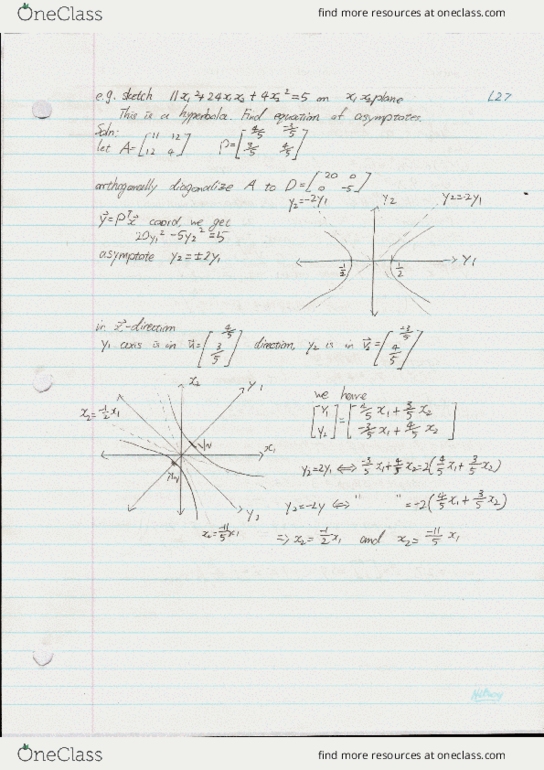 OneClass find more resources at oneclass.com
L27
e.g. sketch 11x₁²+24x₁x₂+4x₂²=5 on x₁x₂plane
This is a hyperbola. Find equation of asymptotes.
Soln:
let A=[11 12; 12 4] P=[4/5 -3/5; 3/5 4/5]
orthogonally diagonalize A to D=[20 0; 0 -5]
y₂=-2y₁ y₂ y₂=-2y₁
y⃗=Pᵀx⃗ coord, we get
20y₁²-5y₂²=5
asymptote y₂=±2y₁
y₁
1/2
in direction
y₁ axis is in =[4/5; 3/5] direction, y₂ is in =[-3/5; 4/5]
x₂ y₁
x₂=-1/2x₁
x₁
y₂
x₂=-11/5x₁
we have
[y₁; y₂]=[4/5 x₁+3/5 x₂; -3/5 x₁+4/5 x₂]
y₂=2y₁ ⟺ -3/5 x₁+4/5 x₂=2(4/5 x₁+3/5 x₂)
y₂=-2y ⟺ " " =-2(4/5 x₁+3/5 x₂)
⇒ x₂=-1/2 x₁ and x₂=-11/5 x₁
OneClass find more resources at oneclass.com